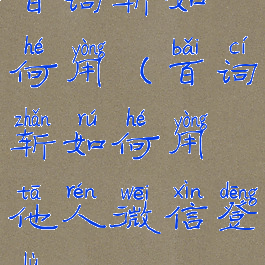 百词斩如
hé yòng bǎi cí
何用(百词
zhǎn rú hé yòng
斩如何用
tā rén wēi xìn dēng
他人微信登
lù